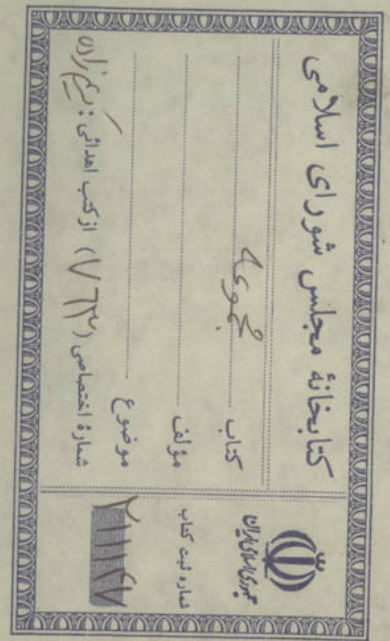 کتابخانهٔ مجلس شورای اسلامی
کتاب مجموعه
مؤلف
موضوع
شمارهٔ اختصاصی (۷۶۳) از کتب اهدائی:
جمهوری اسلامی ایران
شماره ثبت کتاب